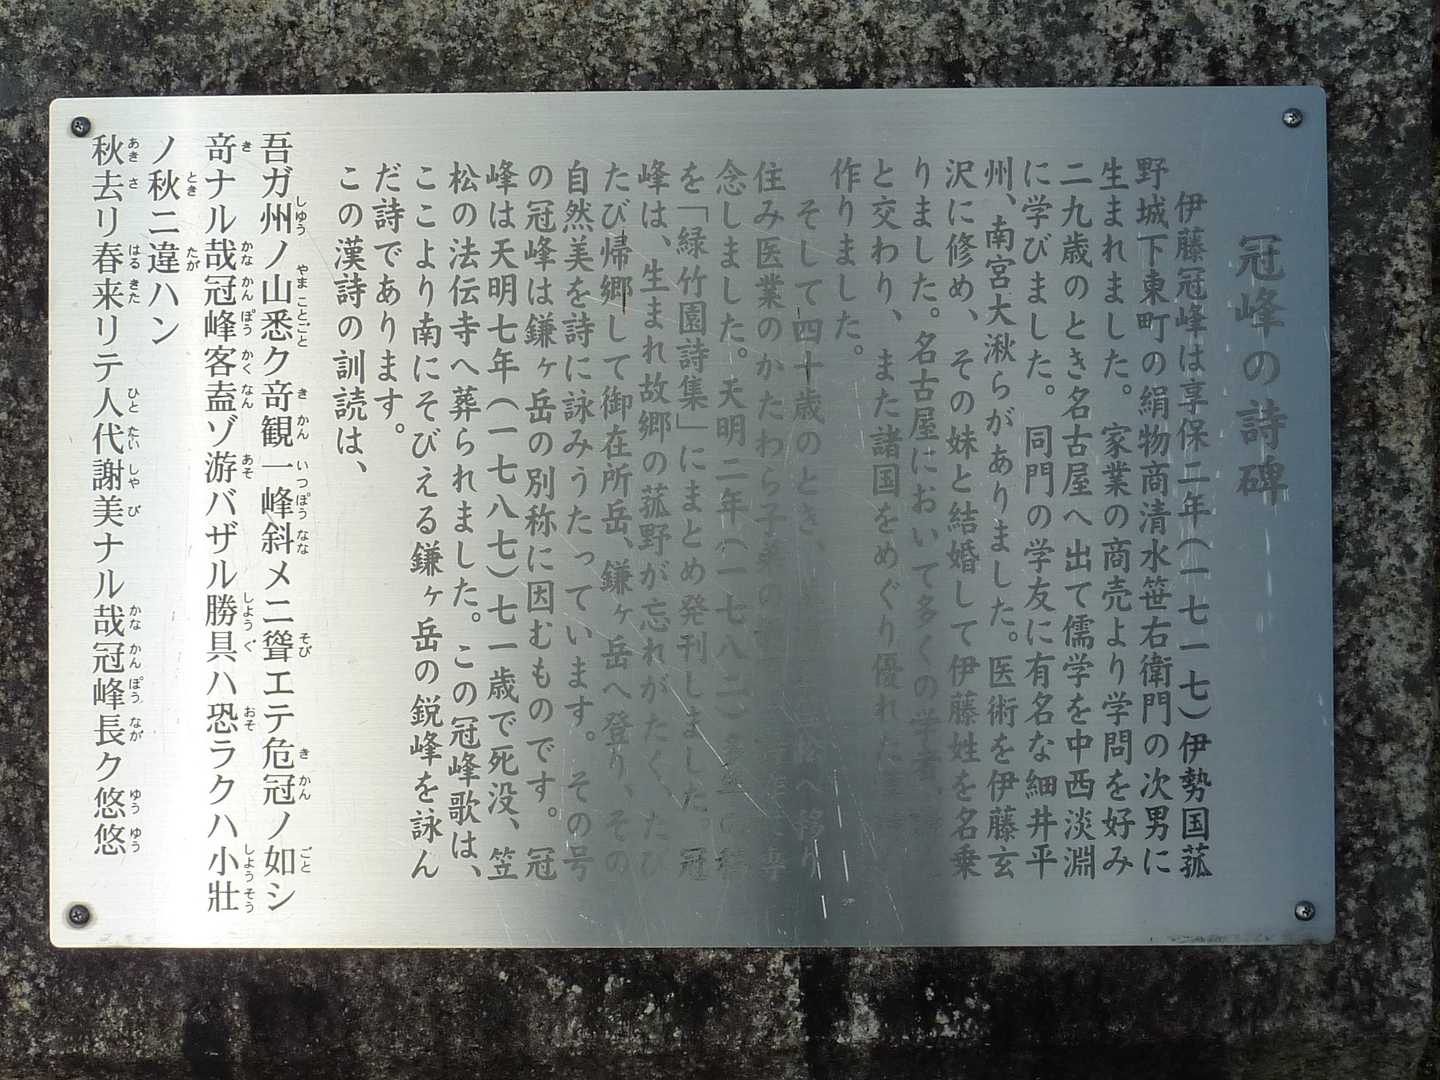 冠峰の詩碑
伊藤冠峰は享保二年(一七一七)伊勢国菰
野城下東町の絹物商清水笹右衛門の次男に
生まれました。家業の商売より学問を好み
二九歳のとき名古屋へ出て儒学を中西淡淵
に学びました。同門の学友に有名な細井平
州、南宮大湫らがありました。医術を伊藤玄
沢に修め、その妹と結婚して伊藤姓を名乗
りました。名古屋において多くの学者
と交わり、また諸国をめぐり優れた
作りました。
そして四十歳のとき、
住み医業のかたわら子弟の
念しました。天明二年(一七八二)
を「緑竹園詩集」にまとめ発刊しました。冠
峰は、生まれ故郷の菰野が忘れがたく、たび
たび帰郷して御在所岳、鎌ヶ岳へ登り、その
自然美を詩に詠みうたっています。その号
の冠峰は鎌ヶ岳の別称に因むものです。冠
峰は天明七年(一七八七)七一歳で死没、笠
松の法伝寺へ葬られました。この冠峰歌は、
ここより南にそびえる鎌ヶ岳の鋭峰を詠ん
だ詩であります。
この漢詩の訓読は、
吾ガ州ノ山悉ク竒観一峰斜メニ聳エテ危冠ノ如シ
竒ナル哉冠峰客盍ゾ游バザル勝具ハ恐ラクハ小壯
ノ秋ニ違ハン
秋去リ春来リテ人代謝美ナル哉冠峰長ク悠悠